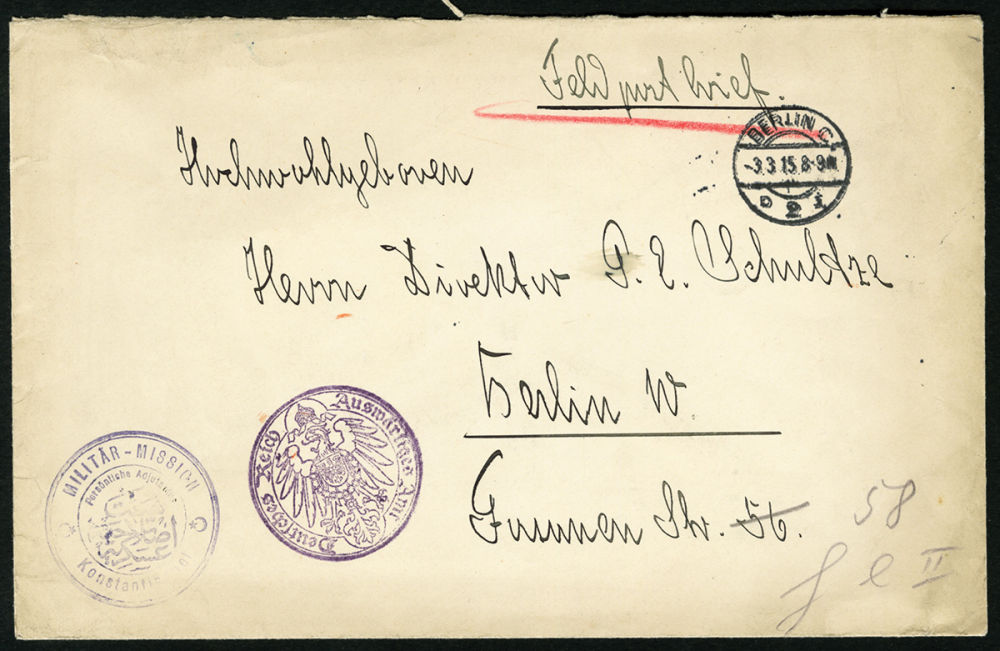 Feldpostbrief.
BERLIN C.
-3.3.15.8-9N.
2
Hochwohlgeboren
Herrn Direktor P. E. Schultze
Berlin W.
Str. 56.
58
II
Deutsches Reich Auswärtiges Amt
MILITÄR-MISSION
Persönliche